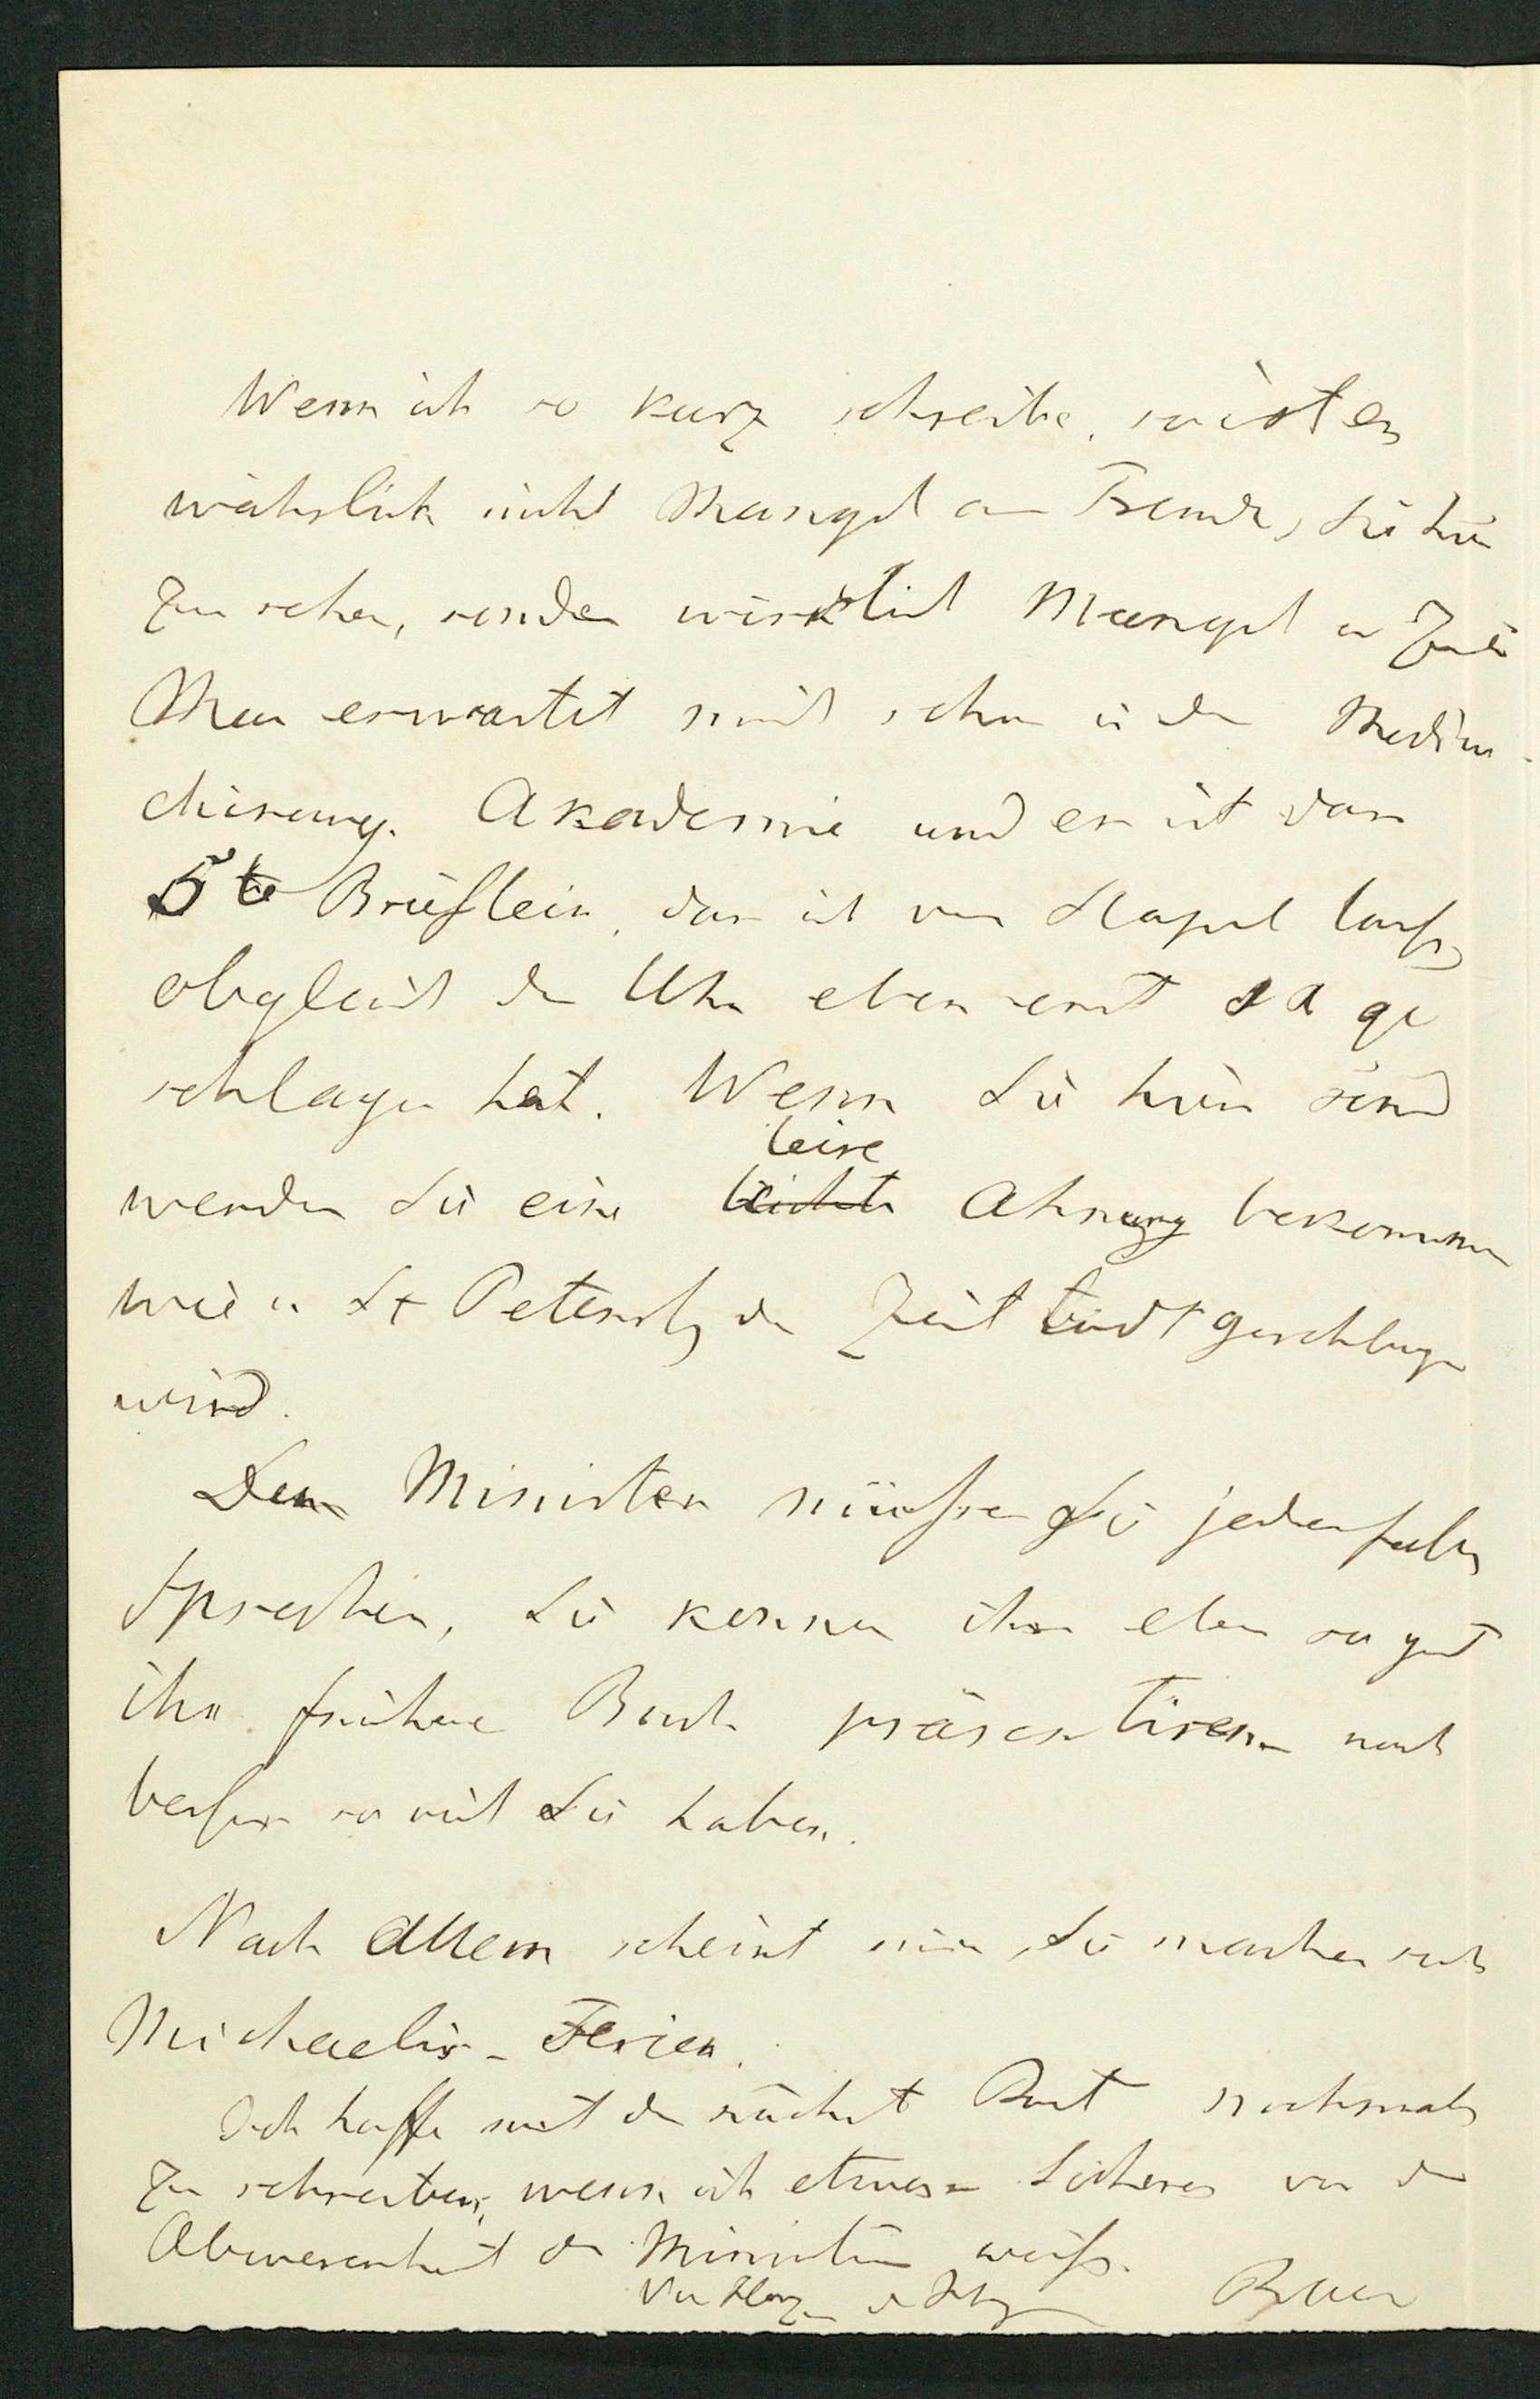 Wenn ich so kurz schreibe, so ist es
wahrlich nicht Mangel an Freude, Sie hier
zu sehen, sondern wirklich Mangel an Zeit.
Man erwartet mich schon in der Medico-
chirurg. Akademie und es ist das
5te Brieflein, das ich vom Stapel lasse
obgleich die Uhr eben erst 10 ge
schlagen hat. Wenn Sie hier sind
werden Sie eine leichte leise Ahnung bekommen
wie in St Petersb. die Zeit todtgeschlagen
wird.
Den Minister müssen Sie jedenfalls
sprechen, Sie können ihm eben so gut
Ihr früheres Buch präsentiren noch
besser so viel Sie haben.
Nach Allem scheint mir, Sie machen sich
Michaelis-Ferien.
Ich hoffe mit der nächst Post nochmals
zu schreiben, wenn ich etwas Sicheres von der
Abwesenheit des Ministers weiß.
Von Herzen der Ihrige Baer